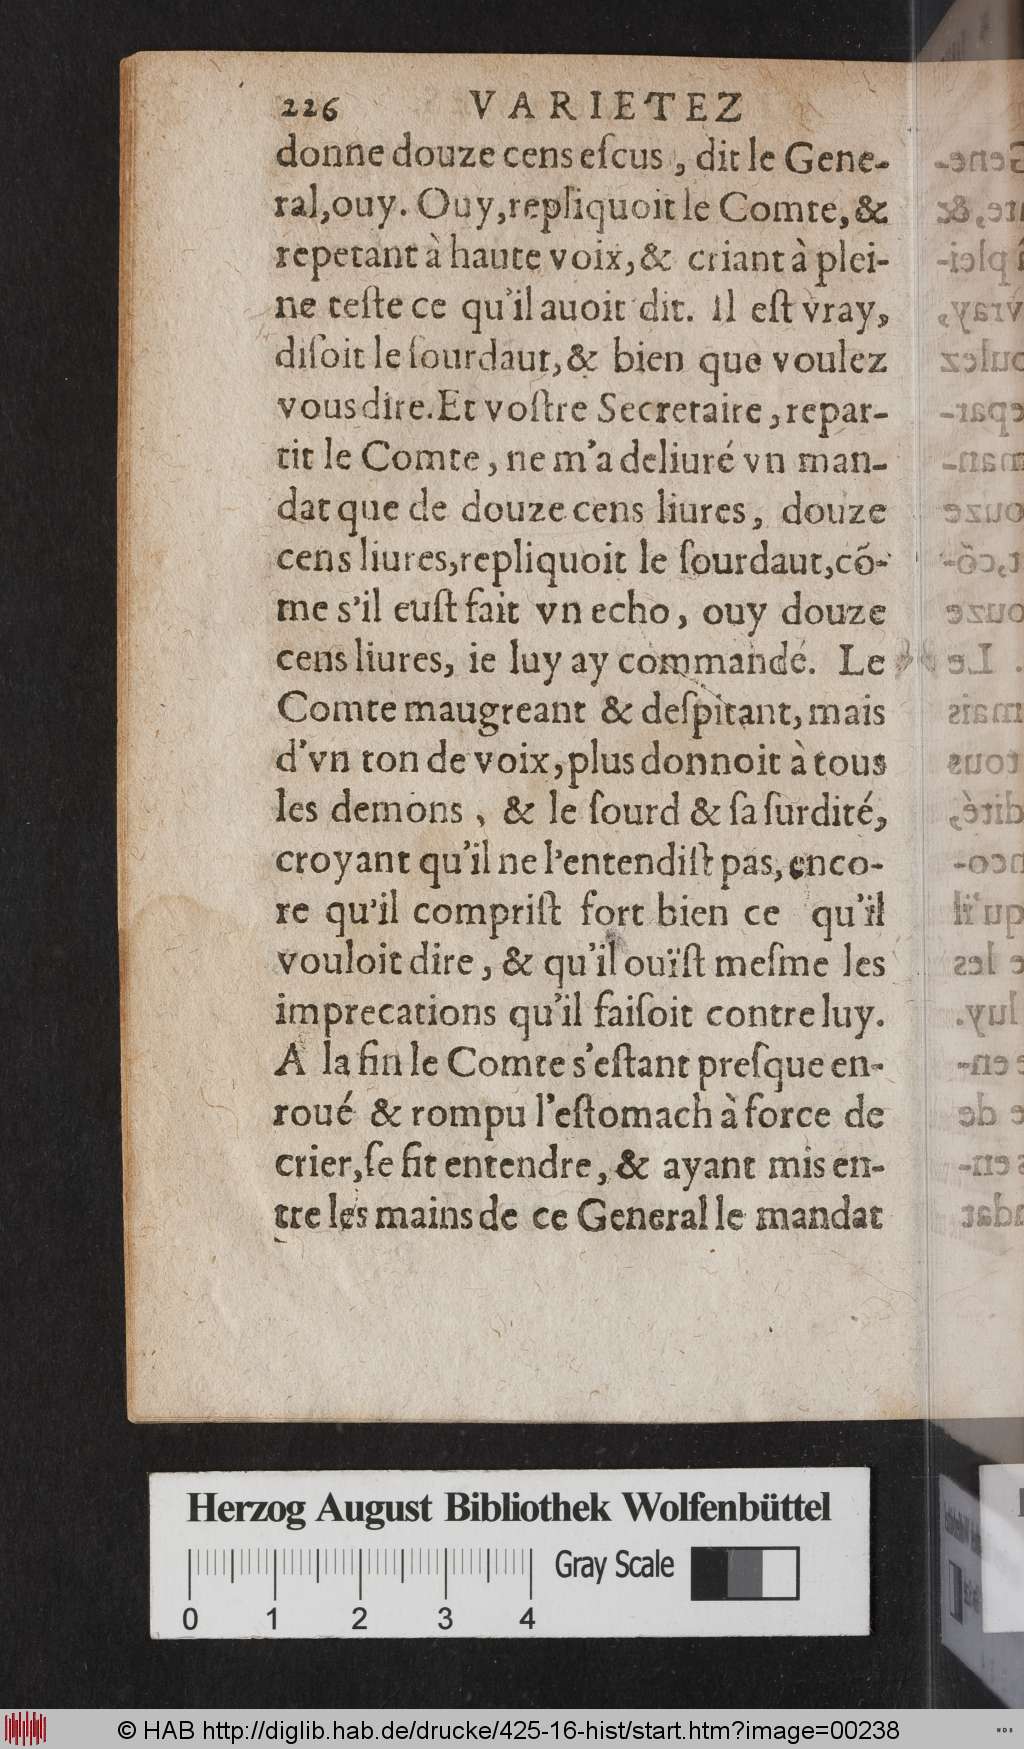 226 VARIETEZ
donne douze cens eſcus, dit le Gene-
ral, ouy. Ouy, repliquoit le Comte, &
repetant à haute voix, & criant à plei-
ne teſte ce qu'il auoit dit. Il eſt vray,
diſoit le ſourdaut, & bien que voulez
vous dire. Et voſtre Secretaire, repar-
tit le Comte, ne m'a deliuré vn man-
dat que de douze cens liures, douze
cens liures, repliquoit le ſourdaut, cõ-
me s'il euſt fait vn echo, ouy douze
cens liures, ie luy ay commandé. Le
Comte maugreant & deſpitant, mais
d'vn ton de voix, plus donnoit à tous
les demons, & le ſourd & ſa ſurdité,
croyant qu'il ne l'entendiſt pas, enco-
re qu'il compriſt fort bien ce qu'il
vouloit dire, & qu'il ouïſt meſme les
imprecations qu'il faiſoit contre luy.
A la fin le Comte s'eſtant preſque en-
roué & rompu l'eſtomach à force de
crier, ſe fit entendre, & ayant mis en-
tre les mains de ce General le mandat
Herzog August Bibliothek Wolfenbüttel
Gray Scale
0 1 2 3 4
© HAB http://diglib.hab.de/drucke/425-16-hist/start.htm?image=00238